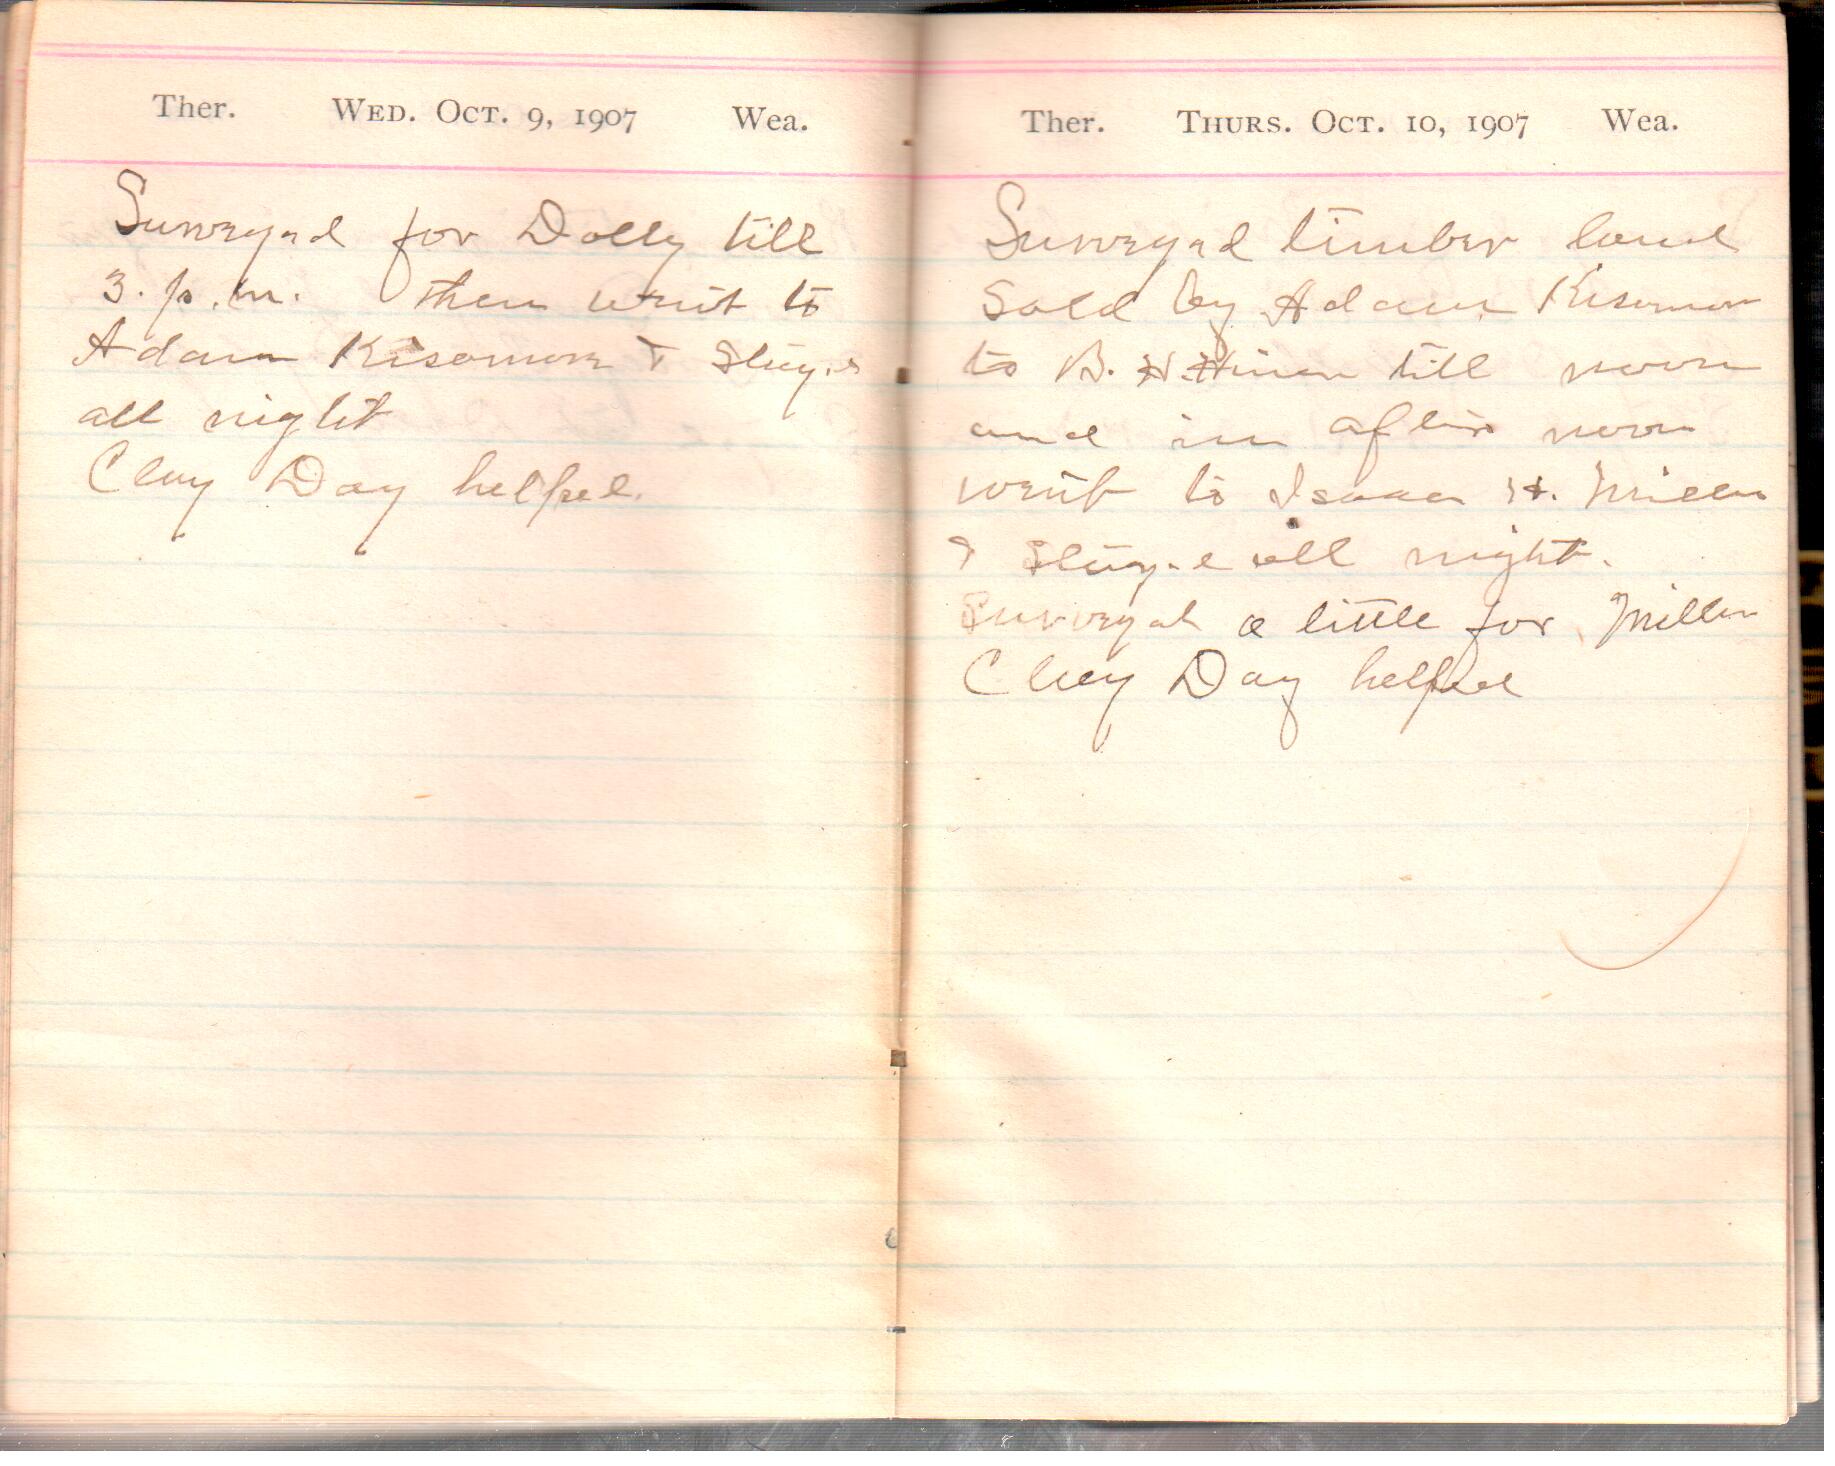 Ther. WED. OCT. 9, 1907 Wea.
Surveyed for Dolly till
3. p.m. then went to
Adam Kisamore & Stayed
all night
Clay Day helped.
Ther. THURS. OCT. 10, 1907 Wea.
Surveyed timber land
Sold by Adam Kisamore
to B. H. Hiner till noon
and in after noon
went to Isaac H. Miller
& Stayed all night.
Surveyed a little for Miller
Clay Day helped